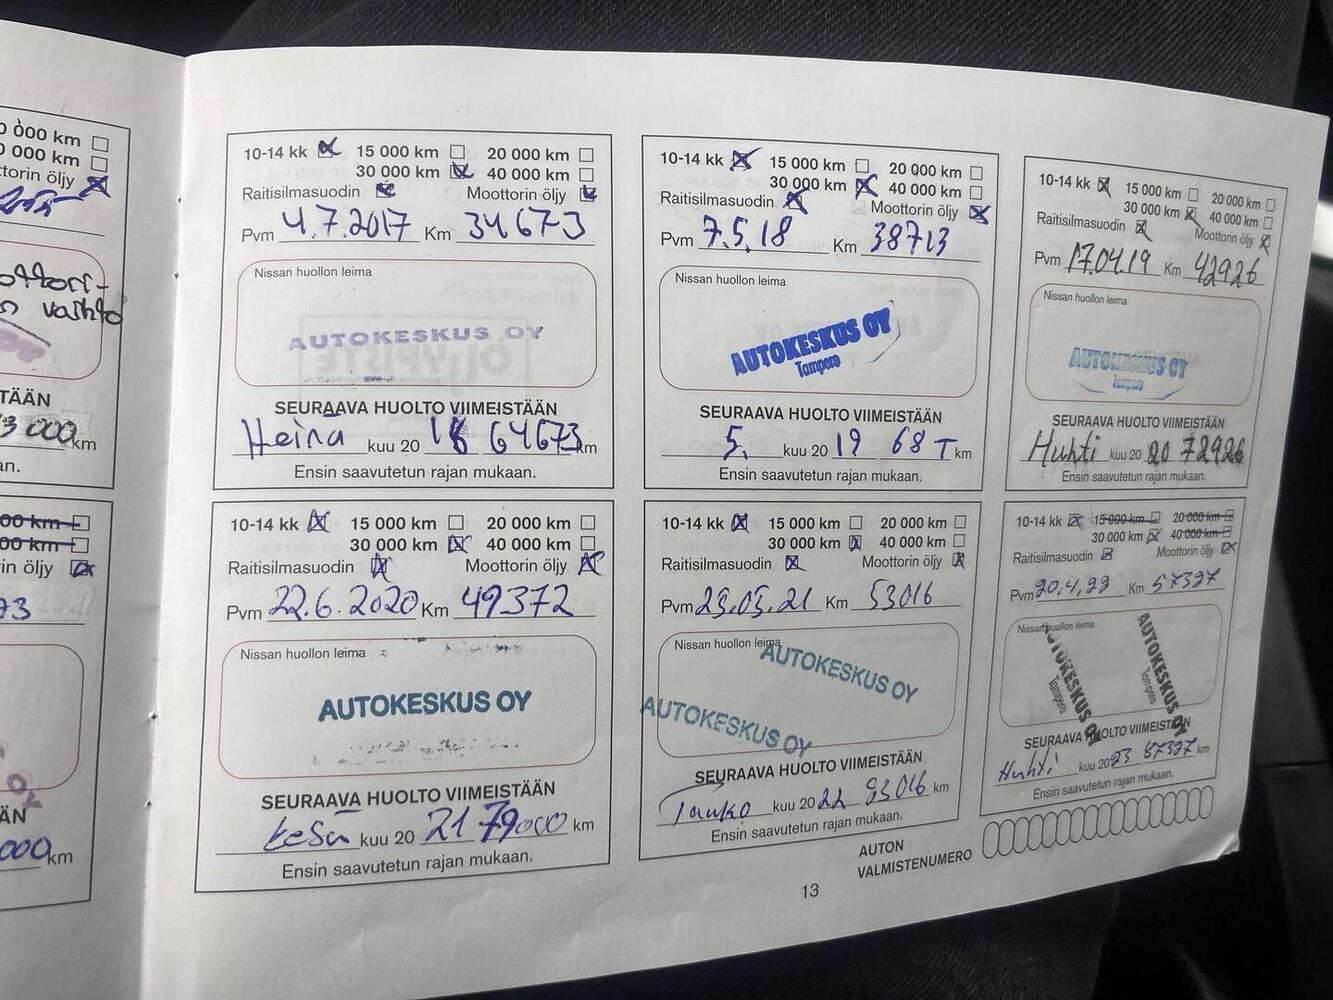 000 km
000 km
ttorin öljy
vaihto
TÄ�N
000 km
an.
00 km
00 km
in öljy
73
ÄN
000 km
10-14 kk 15 000 km 20 000 km
30 000 km 40 000 km
Raitisilmasuodin Moottorin öljy
Pvm 4.7.2017 Km 34673
Nissan huollon leima
AUTOKESKUS OY
SEURAAVA HUOLTO VIIMEISTÄÄN
Heinä kuu 20 18 64673 km
Ensin saavutetun rajan mukaan.
10-14 kk 15 000 km 20 000 km
30 000 km 40 000 km
Raitisilmasuodin Moottorin öljy
Pvm 7.5.18 Km 38713
Nissan huollon leima
AUTOKESKUS OY
Tampere
SEURAAVA HUOLTO VIIMEISTÄÄN
5. kuu 20 19 68 T km
Ensin saavutetun rajan mukaan.
10-14 kk 15 000 km 20 000 km
30 000 km 40 000 km
Raitisilmasuodin Moottorin öljy
Pvm 17.04.19 Km 42926
Nissan huollon leima
AUTOKESKUS OY
Tampere
SEURAAVA HUOLTO VIIMEISTÄÄN
Huhti kuu 20 20 72926
Ensin saavutetun rajan mukaan.
10-14 kk 15 000 km 20 000 km
30 000 km 40 000 km
Raitisilmasuodin Moottorin öljy
Pvm 22.6.2020 Km 49372
Nissan huollon leima
AUTOKESKUS OY
SEURAAVA HUOLTO VIIMEISTÄÄN
kesä kuu 20 21 79000 km
Ensin saavutetun rajan mukaan.
10-14 kk 15 000 km 20 000 km
30 000 km 40 000 km
Raitisilmasuodin Moottorin öljy
Pvm 25.05.21 Km 53016
Nissan huollon leima
AUTOKESKUS OY
AUTOKESKUS OY
SEURAAVA HUOLTO VIIMEISTÄÄN
Touko kuu 20 22 83016 km
Ensin saavutetun rajan mukaan.
10-14 kk 15 000 km 20 000 km
30 000 km 40 000 km
Raitisilmasuodin Moottorin öljy
Pvm 20.4.22 Km 57327
Nissan huollon leima
AUTOKESKUS OY
Tampere
AUTOKESKUS OY
Tampere
SEURAAVA HUOLTO VIIMEISTÄÄN
Huhti kuu 20 23 87327 km
Ensin saavutetun rajan mukaan.
AUTON
VALMISTENUMERO
13